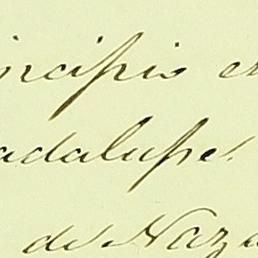 incipio en
adalupe.
de Naza